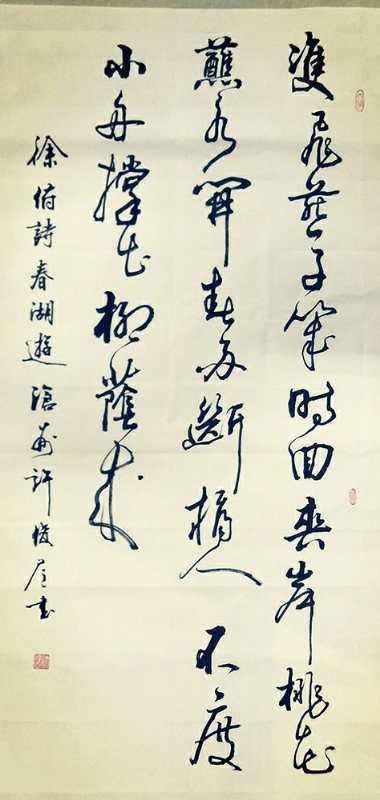 雙飛燕子幾時回夾岸桃花
蘸水開春雨斷橋人不度
小舟撐出柳蔭來
徐俯詩春湖遊 許 書